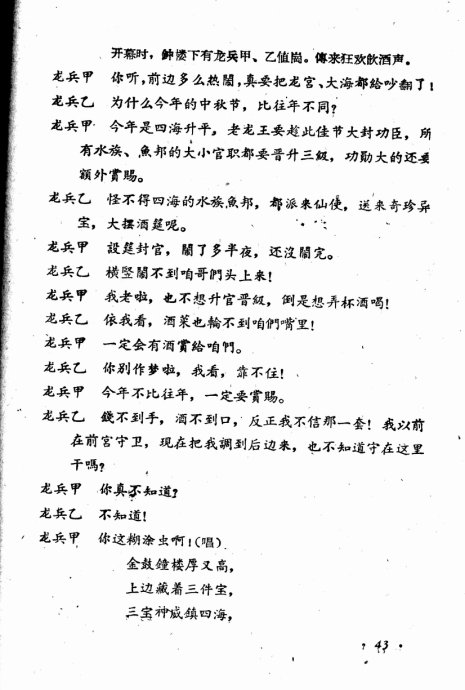 开幕时，鈡楼下有龙兵甲、乙值崗。傳来狂欢飲酒声。
龙兵甲　你听，前边多么热鬧，真要把龙宫、大海都給吵翻了！
龙兵乙　为什么今年的中秋节，比往年不同？
龙兵甲　今年是四海升平，老龙王要趁此佳节大封功臣，所
有水族、魚邦的大小官职都要晋升三級，功勛大的还要
額外賞賜。
龙兵乙　怪不得四海的水族魚邦，都派来仙使，送来奇珍异
宝，大摆酒筵呢。
龙兵甲　設筵封官，鬧了多半夜，还沒鬧完。
龙兵乙　橫竪鬧不到咱哥們头上来！
龙兵甲　我老啦，也不想升官晋級，倒是想弄杯酒喝！
龙兵乙　依我看，酒菜也輪不到咱們嘴里！
龙兵甲　一定会有酒賞給咱們。
龙兵乙　你别作梦啦，我看，靠不住！
龙兵甲　今年不比往年，一定要賞賜。
龙兵乙　錢不到手，酒不到口，反正我不信那一套！我以前
在前宫守卫，现在把我調到后边来，也不知道守在这里
干嗎？
龙兵甲　你真不知道？
龙兵乙　不知道！
龙兵甲　你这糊涂虫啊！（唱）
金鼓鐘楼厚又高，
上边藏着三件宝，
三宝神威鎮四海，
43